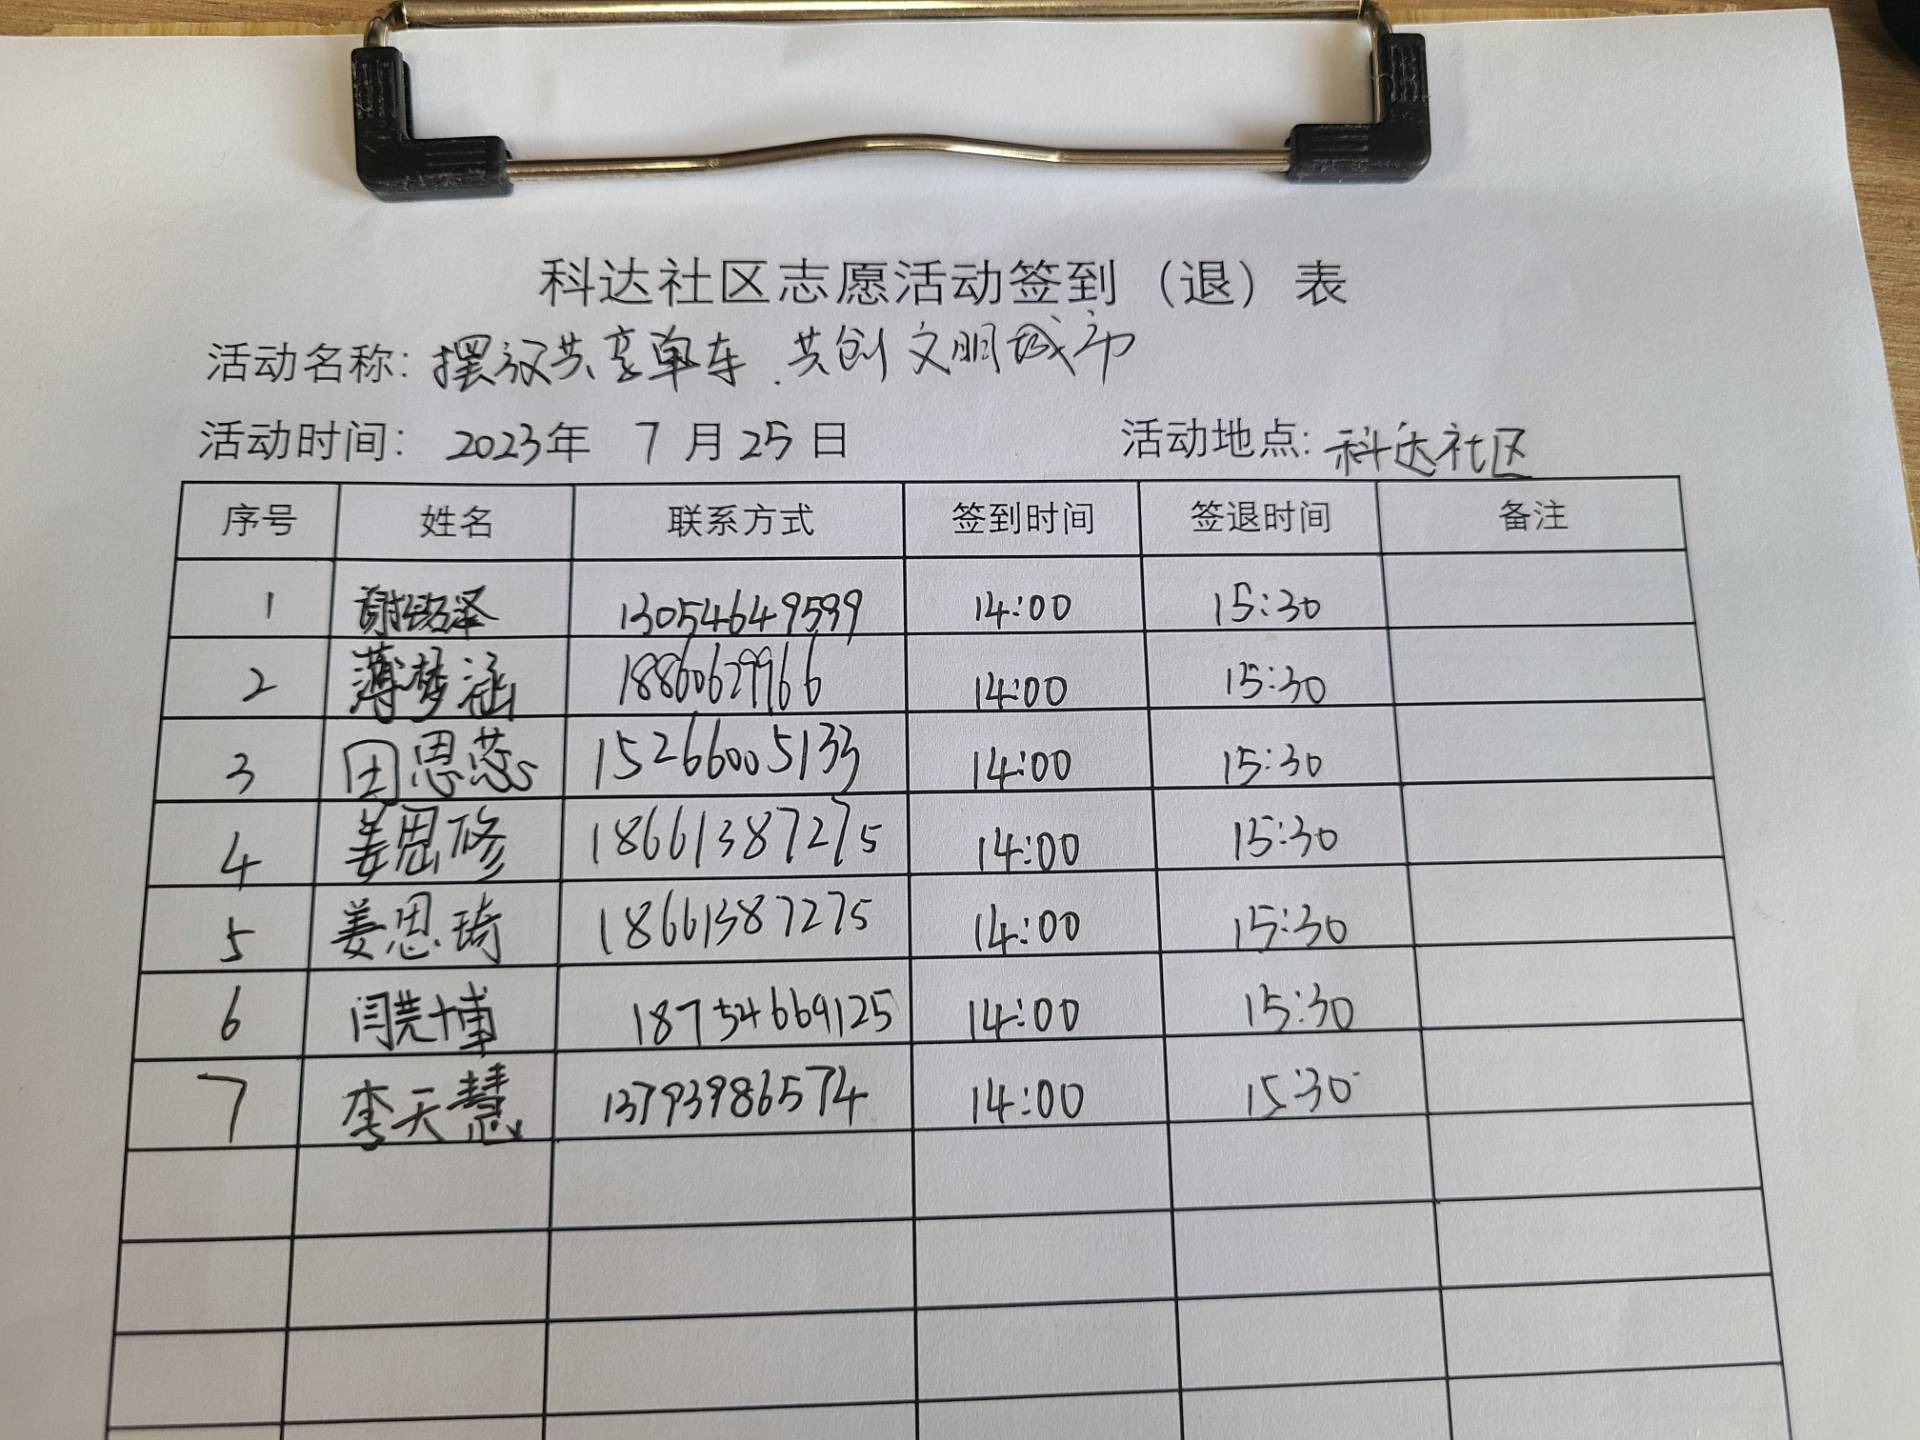 科达社区志愿活动签到（退）表
活动名称: 摆放共享单车、共创文明城市
活动时间: 2023年 7 月 25 日 活动地点: 科达社区
序号 姓名 联系方式 签到时间 签退时间 备注
1 谢铭泽 13054649599 14:00 15:30
2 薄梦涵 18860629966 14:00 15:30
3 田思蕊 15266005133 14:00 15:30
4 姜恩修 18661387275 14:00 15:30
5 姜恩琦 18661387275 14:00 15:30
6 闫博 18754669125 14:00 15:30
7 李天慧 13793986574 14:00 15:30